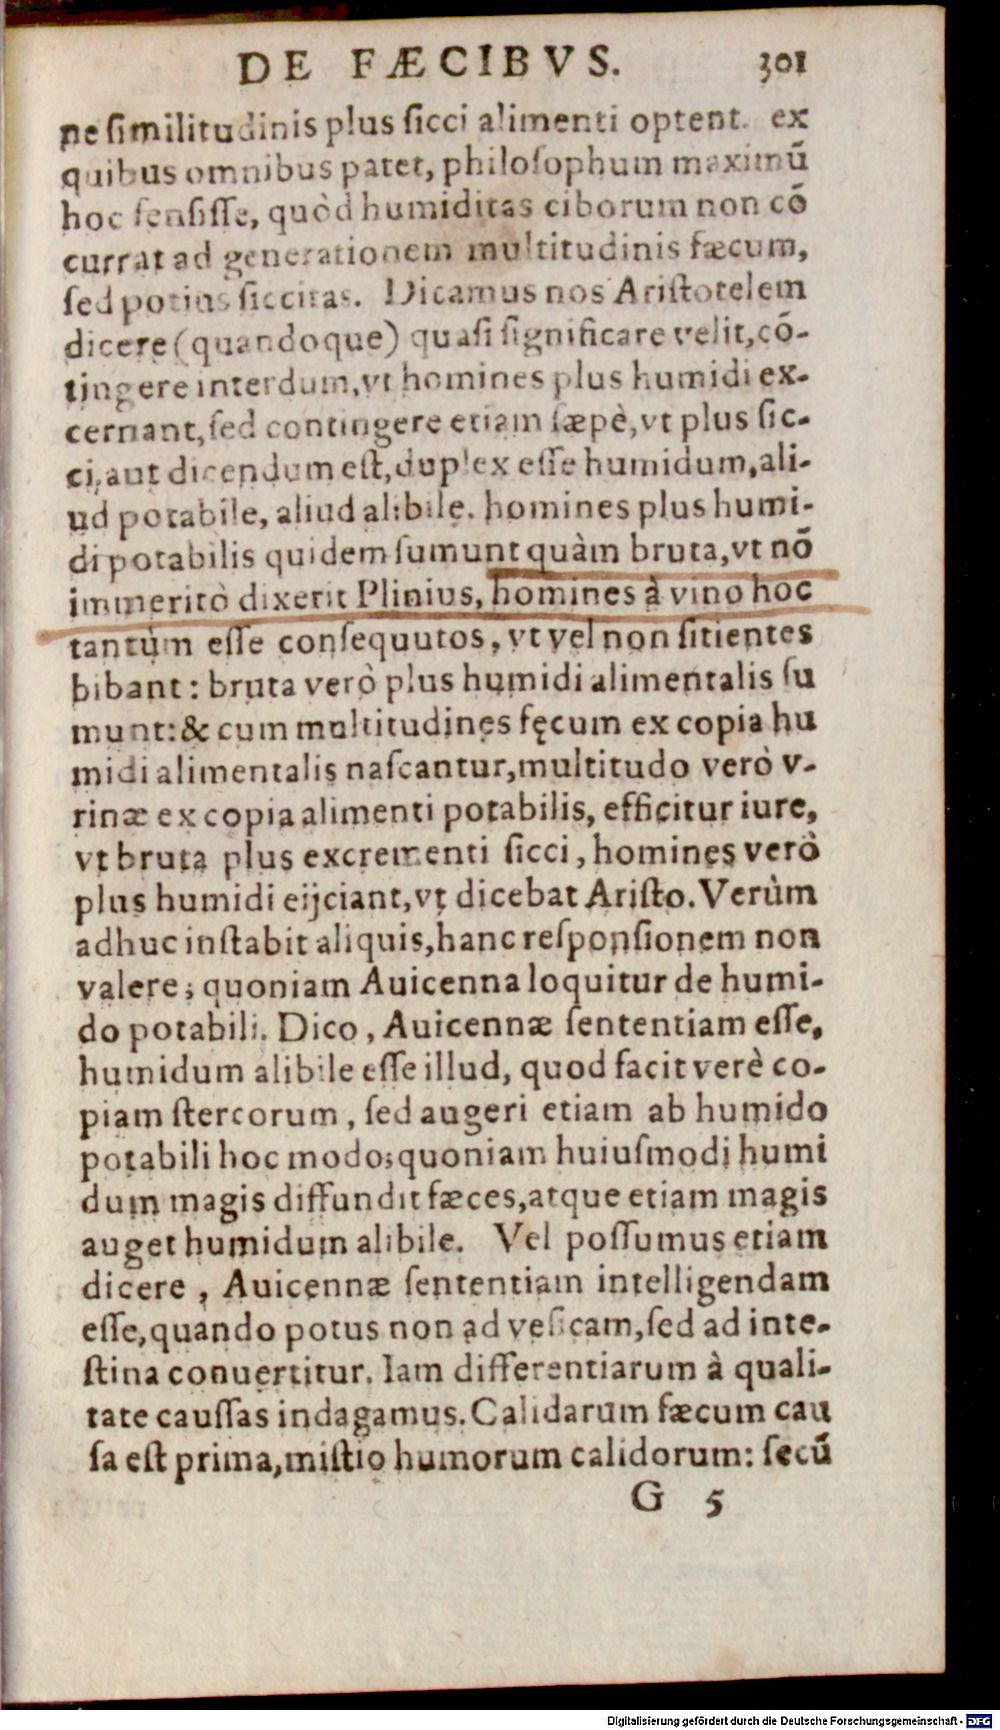 DE FÆCIBVS. 301
ne ſimilitudinis plus ſicci alimenti optent. ex
quibus omnibus patet, philoſophum maximū
hoc ſenſiſſe, quòd humiditas ciborum non cō
currat ad generationem multitudinis fæcum,
ſed potius ſiccitas. Dicamus nos Ariſtotelem
dicere (quandoque) quaſi ſignificare velit, cō-
tingere interdum, vt homines plus humidi ex-
cernant, ſed contingere etiam ſæpè, vt plus ſic-
ci, aut dicendum eſt, duplex eſſe humidum, ali-
ud potabile, aliud alibile. homines plus humi-
di potabilis quidem ſumunt quàm bruta, vt nō
immeritò dixerit Plinius, homines à vino hoc
tantùm eſſe conſequutos, vt vel non ſitientes
bibant: bruta verò plus humidi alimentalis ſu
munt: & cum multitudines fęcum ex copia hu
midi alimentalis naſcantur, multitudo verò v-
rinæ ex copia alimenti potabilis, efficitur iure,
vt bruta plus excrementi ſicci, homines verò
plus humidi eijciant, vt dicebat Ariſto. Verùm
adhuc inſtabit aliquis, hanc reſponſionem non
valere; quoniam Auicenna loquitur de humi-
do potabili. Dico, Auicennæ ſententiam eſſe,
humidum alibile eſſe illud, quod facit verè co-
piam ſtercorum, ſed augeri etiam ab humido
potabili hoc modo; quoniam huiuſmodi humi
dum magis diffundit fæces, atque etiam magis
auget humidum alibile. Vel poſſumus etiam
dicere, Auicennæ ſententiam intelligendam
eſſe, quando potus non ad veſicam, ſed ad inte-
ſtina conuertitur. Iam differentiarum à quali-
tate cauſſas indagamus. Calidarum fæcum cau
ſa eſt prima, miſtio humorum calidorum: ſecū
G 5
Digitalisierung gefördert durch die Deutsche Forschungsgemeinschaft - DFG